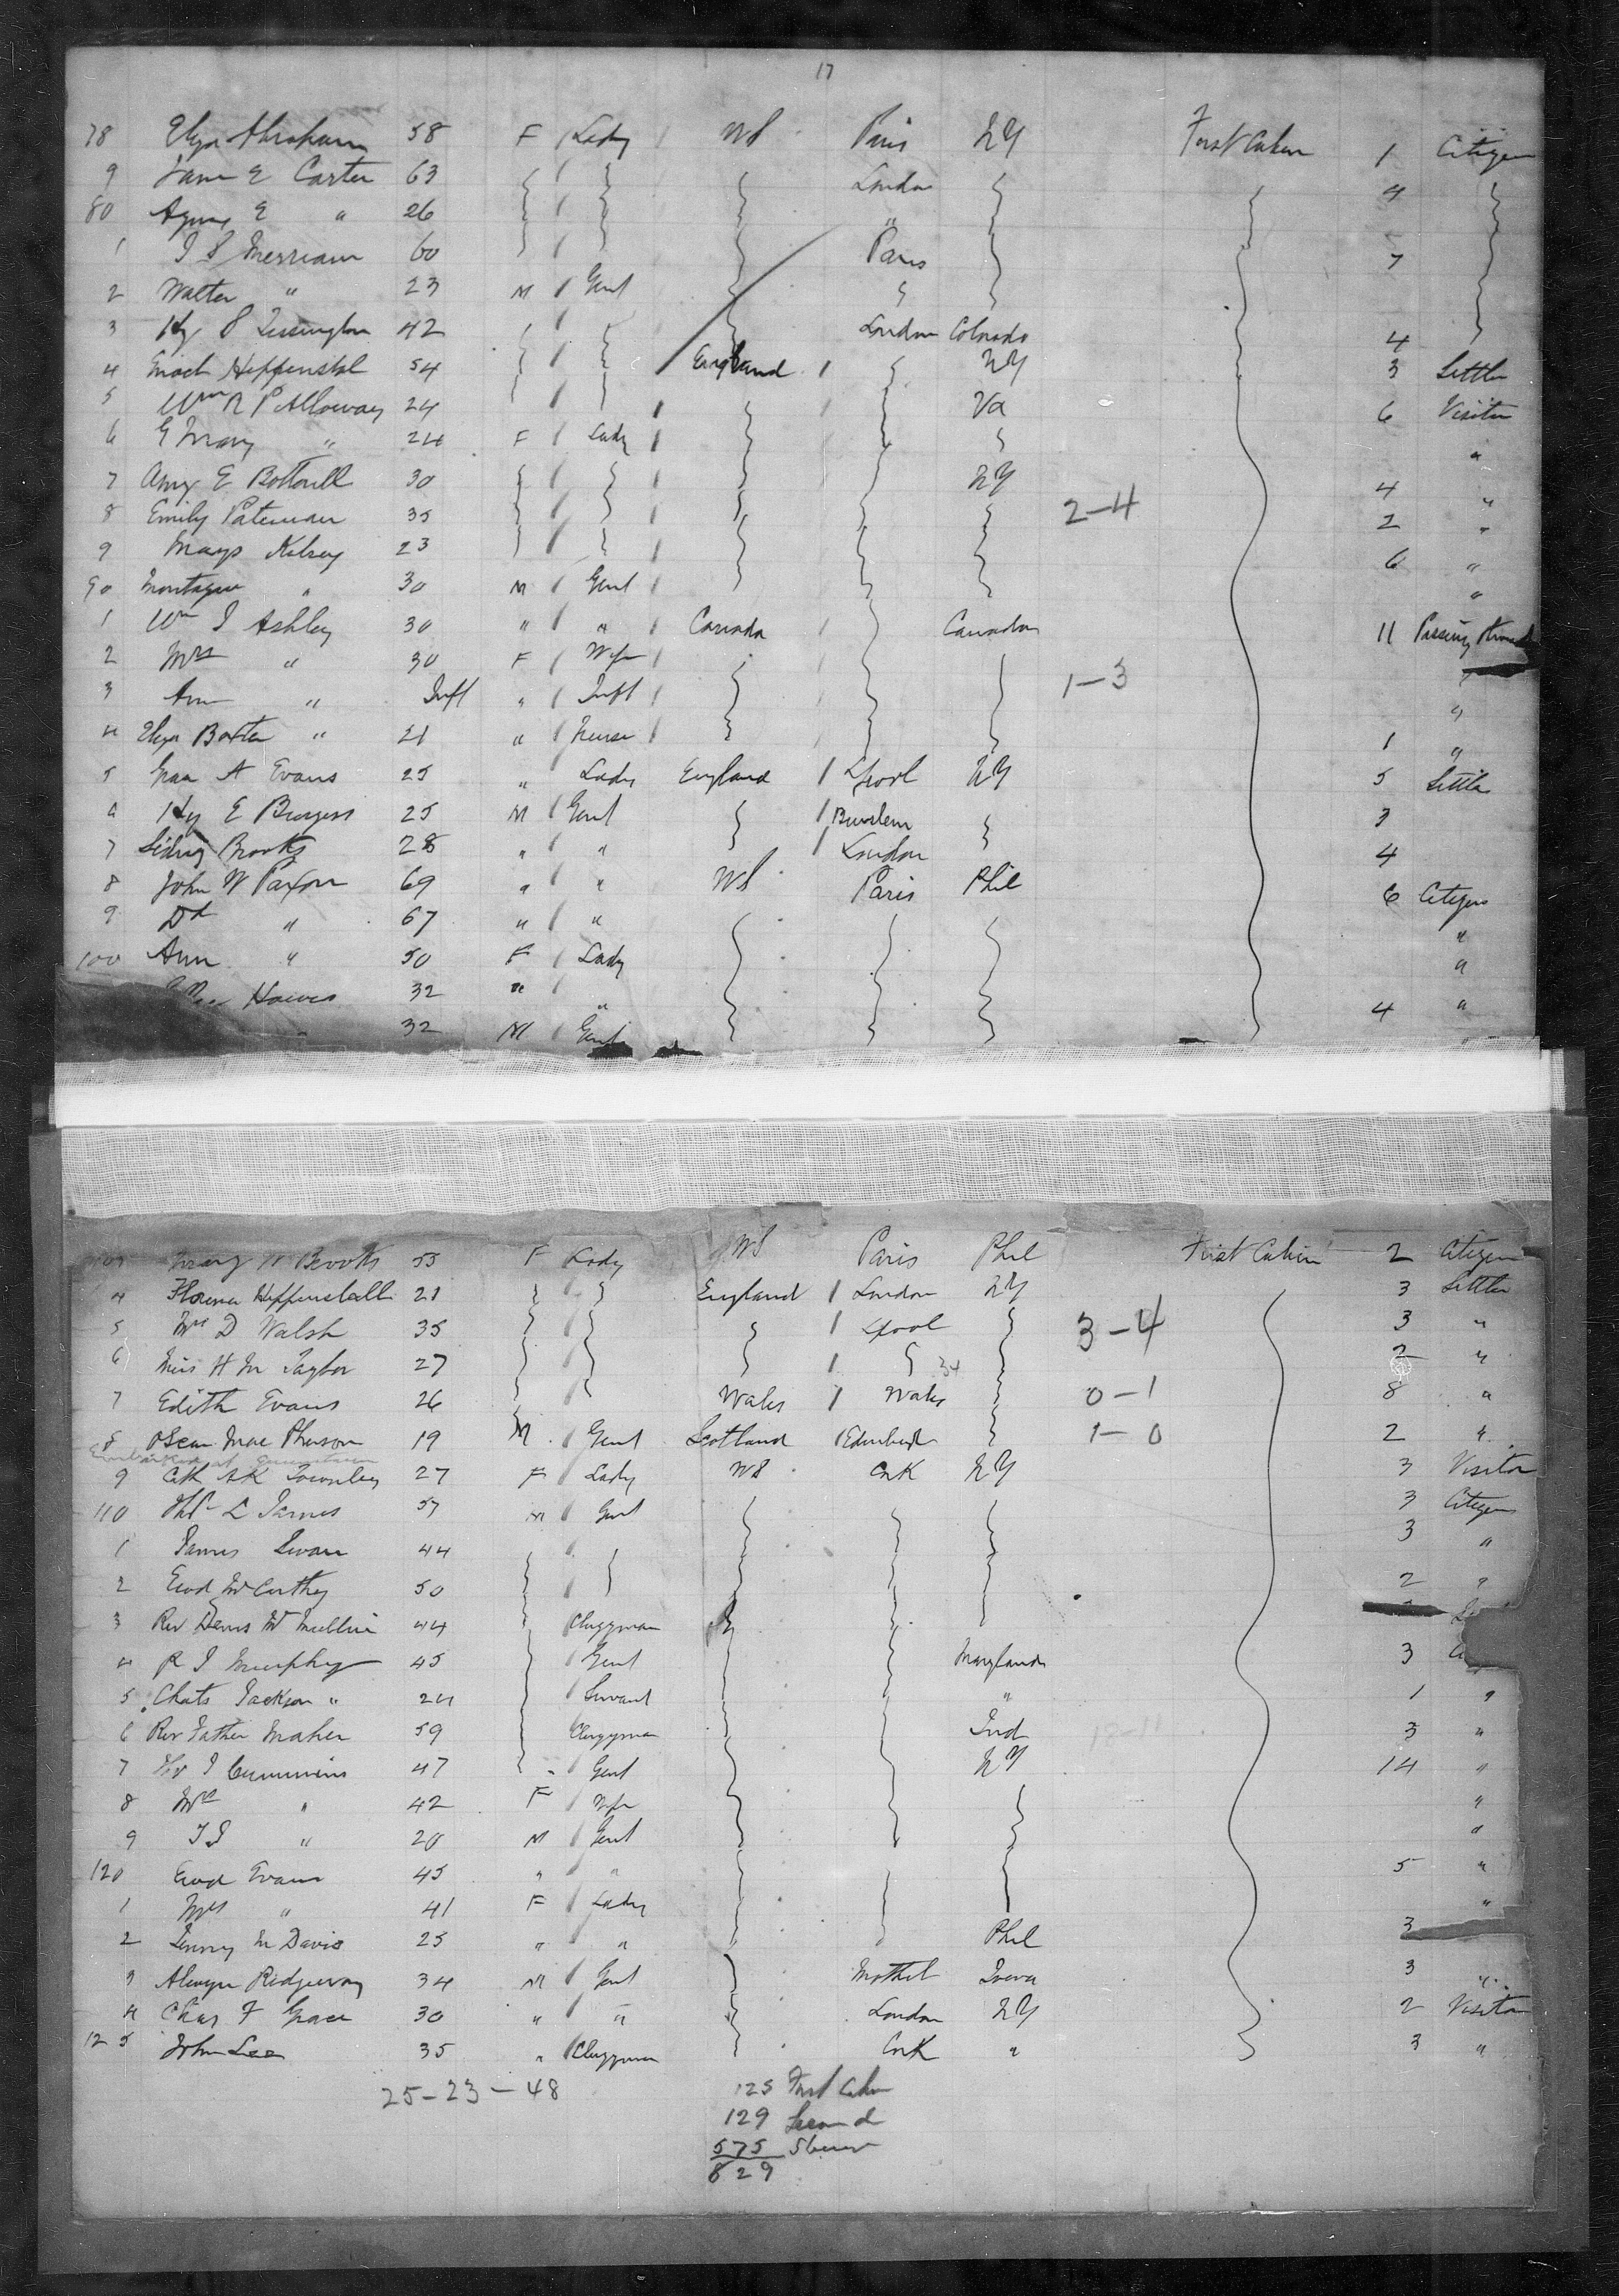 17
78 Eliza Abraham 58 F / Lady / US Paris NY First Cabin 1 Citizen
9 Jane E Carter 63 London 4
80 Agnes E " 26 "
1 J S Merriam 60 Paris 7
2 Walter " 23 M / Gent
3 Hy S Tissington 42 London Colorado 4
4 Enoch Heppenstal 54 England / NY 3 Settler
5 Wm R P Alloway 24 Va 6 Visitor
6 E Mary " 24 F / Lady / "
7 Amy E Bottrill 30 NY 4 "
8 Emily Pateman 35 2-4 2 "
9 Mays Kelsey 23 6 "
90 Montague " 30 M / Gent / "
1 Wm J Ashley 30 " / " / Canada / Canada 11 Passing through
2 Mrs " 30 F / Wife / 1-3 "
3 Ann " Inft " / Inft / "
4 Eliza Baxter " 21 " / Nurse / 1 "
5 A Evans 25 " Lady England / Lpool NY 5 Settler
6 Hy E Burgess 25 M / Gent / Burslem 3
7 Sidney Brooks 28 " / " / London 4
8 John W Paxson 69 " / " US Paris Phil 6 Citizens
9 Dd " 67 " / " "
100 Ann " 50 F / Lady "
Howes 32 " / " 4 "
" 32 M / Gent
103 Mary H Brooks 55 F Lady US Paris Phil First Cabin 2 Citizen
4 Florence Heppenstall 21 England / London NY 3 Settler
5 Mrs D Walsh 35 / Lpool 3-4 3 "
6 Miss H M Taylor 27 / 34 2 "
7 Edith Evans 26 Wales / Wales 0-1 8 "
8 Oscar MacPherson 19 M / Gent Scotland / Edinburgh 1-0 2 "
Embarked at Queenstown
9 Cath AK Townley 27 F / Lady US Cork NY 3 Visitor
110 Thos L James 57 M / Gent 3 Citizens
1 James Swan 44 3 "
2 Ewd McCarthy 50 2 "
3 Rev Denis McMullin 44 Clergyman
4 R J Murphy 45 / Gent Maryland 3
5 Chats Jackson " 24 / Servant " 1 "
6 Rev Father Maher 59 Clergyman Ind 18-11 3 "
7 J Cummins 47 " / Gent NY 14 "
8 Mrs " 42 F / Wife "
9 T J " 20 M / Gent "
120 Ewd Evans 45 " / " 5 "
1 Mrs " 41 F / Lady "
2 Jenny M Davis 25 " / " Phil 3
3 Alwyn Ridgeway 34 M / Gent Iowa 3 "
4 Chas F Grace 30 " / " London NY 2 Visitor
125 John Lee 35 " / Clergyman Cork " 3 "
25-23-48 125 First Cabin
129 Second
575 Steerage
829